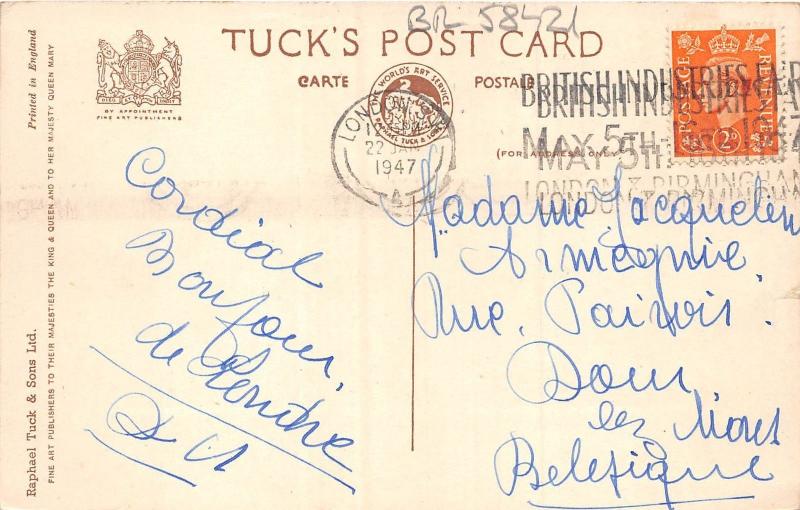 BR 58421
TUCK'S POST CARD
CARTE
POSTALE
BY APPOINTMENT
FINE ART PUBLISHERS
THE WORLD'S ART SERVICE
RAPHAEL TUCK & SONS LTD
(FOR ADDRESS ONLY)
POSTAGE
REVENUE
2D
LONDON
22 JAN
1947
A
BRITISH INDUSTRIES FAIR
MAY 5TH
LONDON & BIRMINGHAM
Printed in England
Raphael Tuck & Sons Ltd.
FINE ART PUBLISHERS TO THEIR MAJESTIES THE KING & QUEEN AND TO HER MAJESTY QUEEN MARY
Cordial
Bonjour
de Londre
Madame Jacquelin
Rue
Dour
lez Mons
Belgique